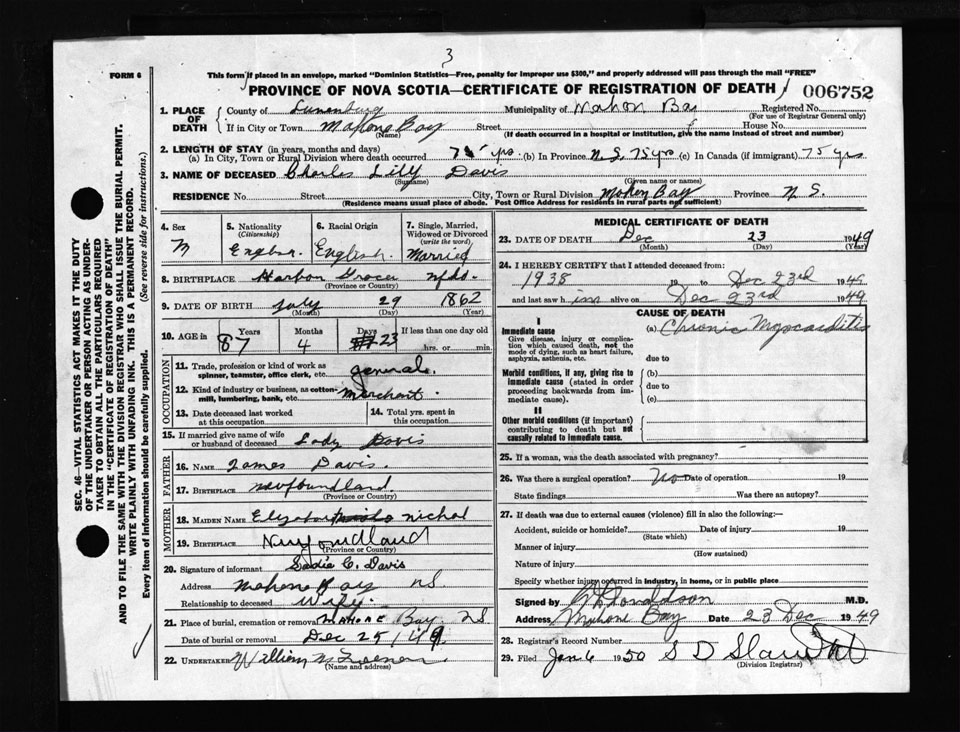 3
FORM 6
This form if placed in an envelope, marked "Dominion Statistics—Free, penalty for improper use $300," and properly addressed will pass through the mail "FREE"
PROVINCE OF NOVA SCOTIA—CERTIFICATE OF REGISTRATION OF DEATH
006752
SEC. 46—VITAL STATISTICS ACT MAKES IT THE DUTY
OF THE UNDERTAKER OR PERSON ACTING AS UNDER-
TAKER TO OBTAIN ALL THE PARTICULARS REQUIRED
IN THE "CERTIFICATE OF REGISTRATION OF DEATH"
AND TO FILE THE SAME WITH THE DIVISION REGISTRAR WHO SHALL ISSUE THE BURIAL PERMIT.
WRITE PLAINLY WITH UNFADING INK. THIS IS A PERMANENT RECORD.
Every item of information should be carefully supplied. (See reverse side for instructions.)
1. PLACE OF DEATH
County of Lunenburg Municipality of Mahon Bay Registered No.
(For use of Registrar General only)
If in City or Town Mahone Bay Street House No.
(Name) (If death occurred in a hospital or institution, give the name instead of street and number)
2. LENGTH OF STAY (in years, months and days)
(a) In City, Town or Rural Division where death occurred 75 yrs. (b) In Province N.S. 75 yrs (c) In Canada (if immigrant) 75 yrs
3. NAME OF DECEASED Charles Lilly Davis
(Surname) (Given name or names)
RESIDENCE No. Street City, Town or Rural Division Mahon Bay Province N S.
(Residence means usual place of abode. Post Office Address for residents in rural parts not sufficient)
4. Sex
M
5. Nationality
(Citizenship)
6. Racial Origin
English.
7. Single, Married, Widowed or Divorced
(write the word)
Married
8. BIRTHPLACE Harbor Grace Nfld.
(Province or Country)
9. DATE OF BIRTH July 29 1862
(Month) (Day) (Year)
10. AGE in
Years Months Days If less than one day old
87 4 23 hrs. or min.
OCCUPATION
11. Trade, profession or kind of work as
spinner, teamster, office clerk, etc. general.
12. Kind of industry or business, as cotton-
mill, lumbering, bank, etc. Merchant.
13. Date deceased last worked
at this occupation
14. Total yrs. spent in
this occupation
15. If married give name of wife
or husband of deceased Davis
FATHER
16. NAME James Davis.
17. BIRTHPLACE Newfoundland.
(Province or Country)
MOTHER
18. MAIDEN NAME Nichol
19. BIRTHPLACE Newfoundland
(Province or Country)
20. Signature of informant Sadie C. Davis
Address Mahone Bay NS
Relationship to deceased Wife.
21. Place of burial, cremation or removal MAHONE Bay NS
Date of burial or removal Dec 25/49
22. UNDERTAKER William
(Name and address)
MEDICAL CERTIFICATE OF DEATH
23. DATE OF DEATH Dec 23 1949
(Month) (Day) (Year)
24. I HEREBY CERTIFY that I attended deceased from:
1938 19 to Dec 23rd 1949
and last saw him alive on Dec 23rd 1949
CAUSE OF DEATH
I
Immediate cause
Give disease, injury or complica-
tion which caused death, not the
mode of dying, such as heart failure,
asphyxia, asthenia, etc.
(a) Chronic Myocarditis
due to
Morbid conditions, if any, giving rise to
immediate cause (stated in order
proceeding backwards from im-
mediate cause).
(b)
due to
(c)
II
Other morbid conditions (if important)
contributing to death but not
causally related to immediate cause.
25. If a woman, was the death associated with pregnancy?
26. Was there a surgical operation? No Date of operation 19
State findings Was there an autopsy?
27. If death was due to external causes (violence) fill in also the following:—
Accident, suicide or homicide? Date of injury 19
(State which)
Manner of injury
(How sustained)
Nature of injury
Specify whether injury occurred in industry, in home, or in public place
Signed by Donaldson M.D.
Address Mahone Bay Date 23 Dec 1949
28. Registrar's Record Number
29. Filed Jan 6 1950 S D
(Division Registrar)